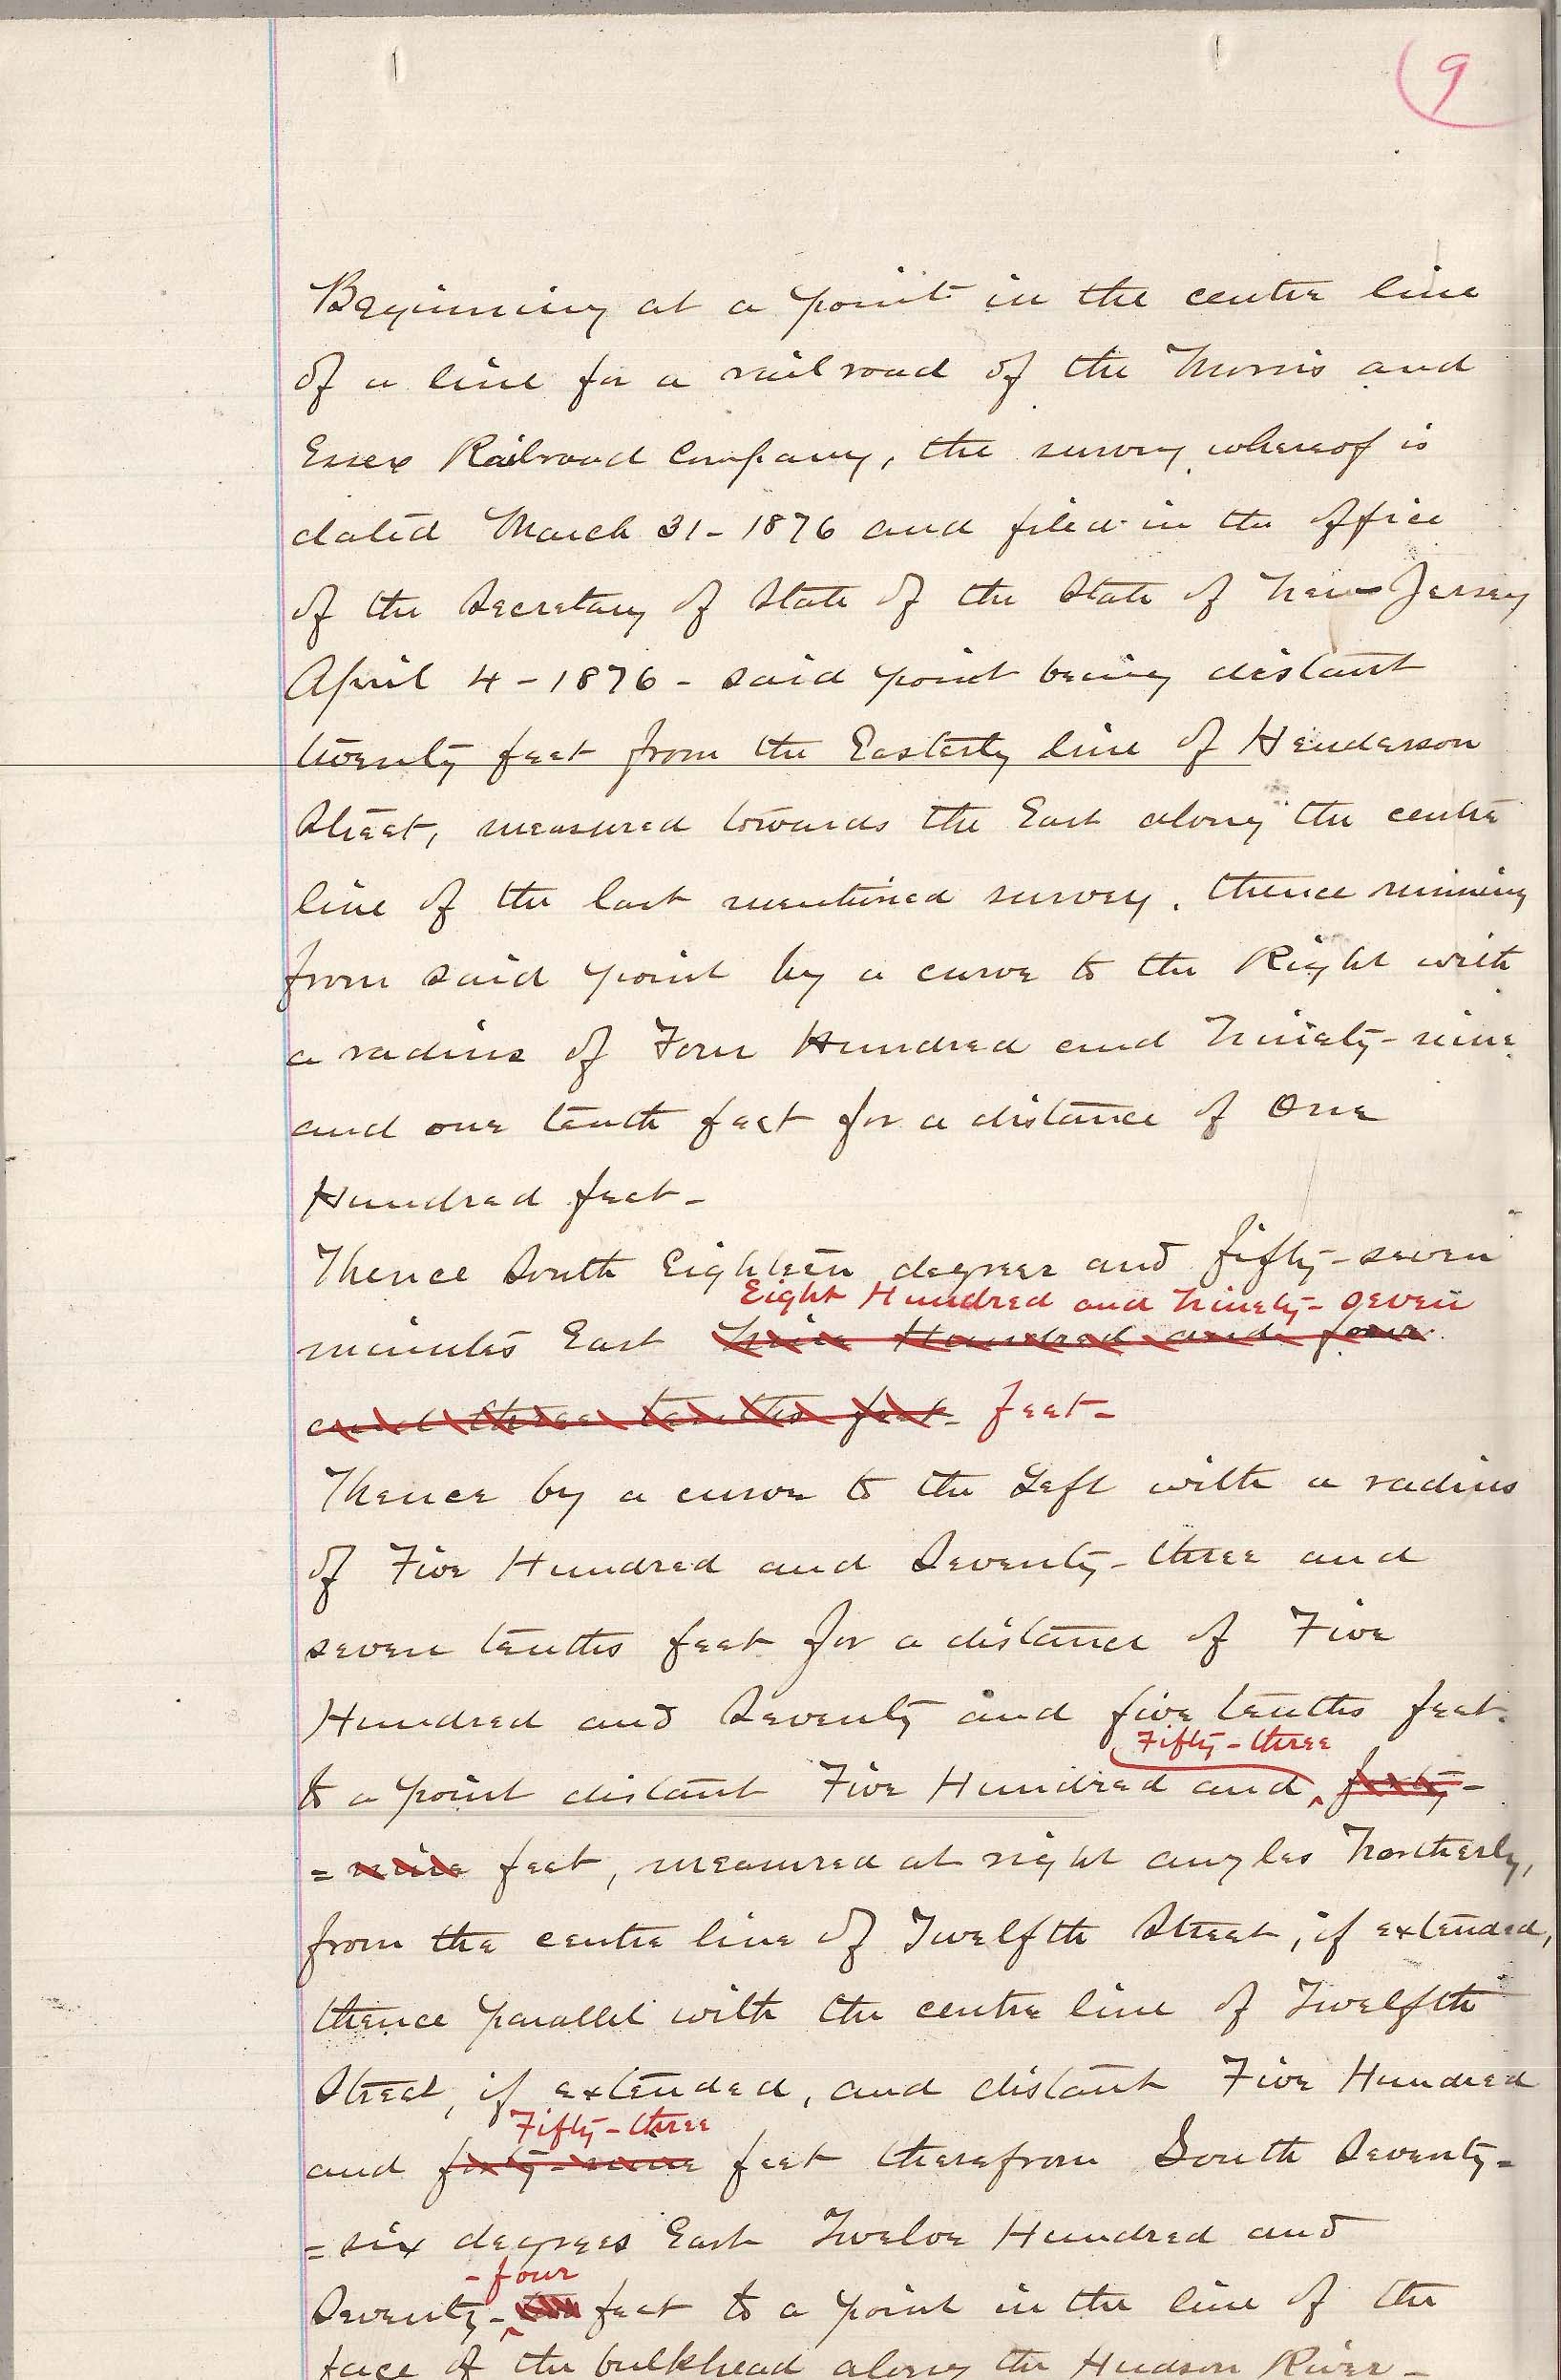 9
Beginning at a point in the centre line
of a line for a railroad of the Morris and
Essex Railroad Company, the survey whereof is
dated March 31-1876 and filed in the office
of the Secretary of State of the State of New Jersey
April 4-1876- said point being distant
twenty feet from the Easterly line of Henderson
Street, measured towards the East along the centre
line of the last mentioned survey. thence running
from said point by a curve to the Right with
a radius of Four Hundred and Ninety-nine
and one tenth feet for a distance of One
Hundred feet-
Thence South Eighteen degrees and fifty-seven
Eight Hundred and Ninety-seven
minutes East Nine Hundred and four
and three tenths feet- feet-
Thence by a curve to the Left with a radius
of Five Hundred and Seventy-three and
seven tenths feet for a distance of Five
Hundred and Seventy and five tenths feet.
Fifty-three
to a point distant Five Hundred and forty-
=nine feet, measured at right angles Northerly,
from the centre line of Twelfth Street, if extended,
thence parallel with the centre line of Twelfth
Street, if extended, and distant Five Hundred
Fifty-three
and forty-nine feet therefrom South Seventy-
=six degrees East Twelve Hundred and
-four
Seventy- feet to a point in the line of the
face of the bulkhead along the Hudson River-